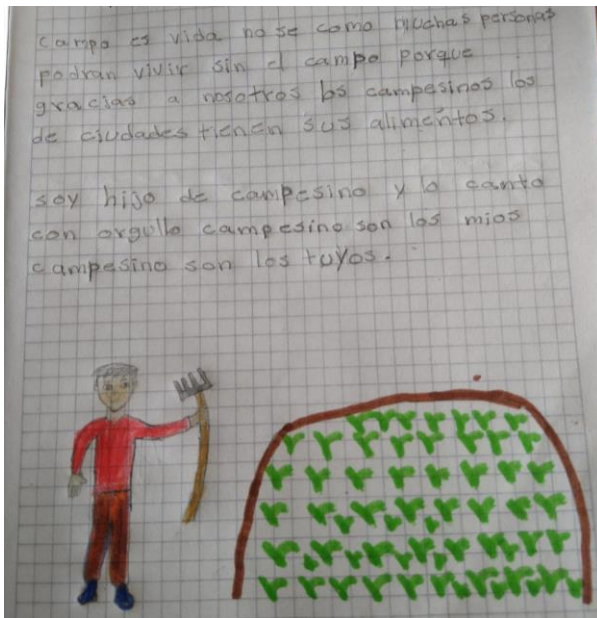 campo es vida no se como muchas personas
podran vivir sin el campo porque
gracias a nosotros los campesinos los
de ciudades tienen sus alimentos.
soy hijo de campesino y lo canto
con orgullo campesino son los mios
campesino son los tuyos.